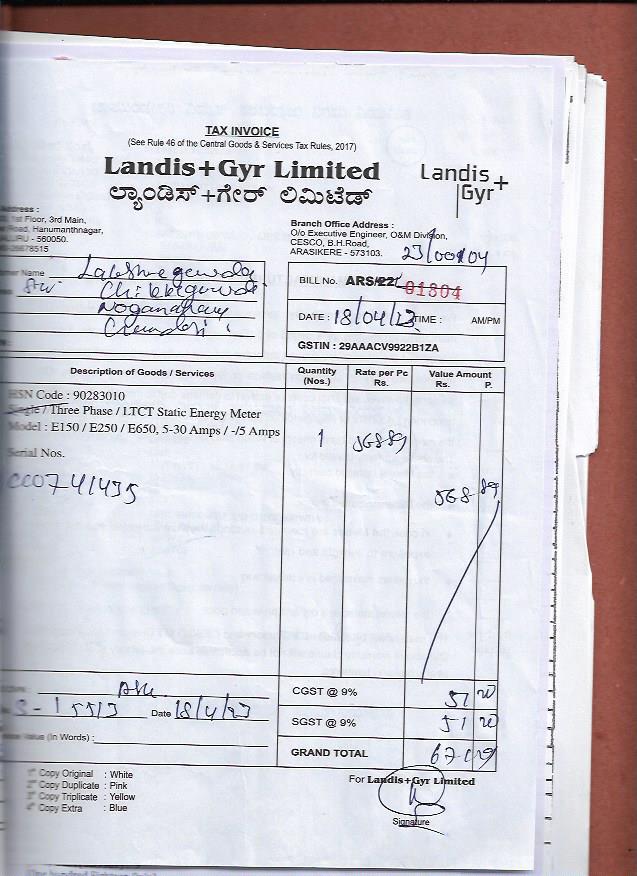 TAX INVOICE
(See Rule 46 of the Central Goods & Services Tax Rules, 2017)
Landis+Gyr Limited
ಲ್ಯಾಂಡಿಸ್+ಗೇರ್ ಲಿಮಿಟೆಡ್
Landis+
Gyr
Address :
1st Floor, 3rd Main,
Road, Hanumanthnagar,
- 560050.
Branch Office Address :
O/o Executive Engineer, O&M Division,
CESCO, B.H.Road,
ARASIKERE - 573103.
Name
BILL No. ARS/22/ 01804
DATE : 18/04/23 TIME : AM/PM
GSTIN : 29AAACV9922B1ZA
Description of Goods / Services
Quantity (Nos.)
Rate per Pc Rs.
Value Amount Rs. P.
HSN Code : 90283010
Single / Three Phase / LTCT Static Energy Meter
Model : E150 / E250 / E650, 5-30 Amps / -/5 Amps
1
568 89
Serial Nos.
568 89
CGST @ 9% 51 20
Date 18/4/23
SGST @ 9% 51 20
Value (In Words) :
GRAND TOTAL
1st Copy Original : White
2nd Copy Duplicate : Pink
3rd Copy Triplicate : Yellow
4th Copy Extra : Blue
For Landis+Gyr Limited
Signature